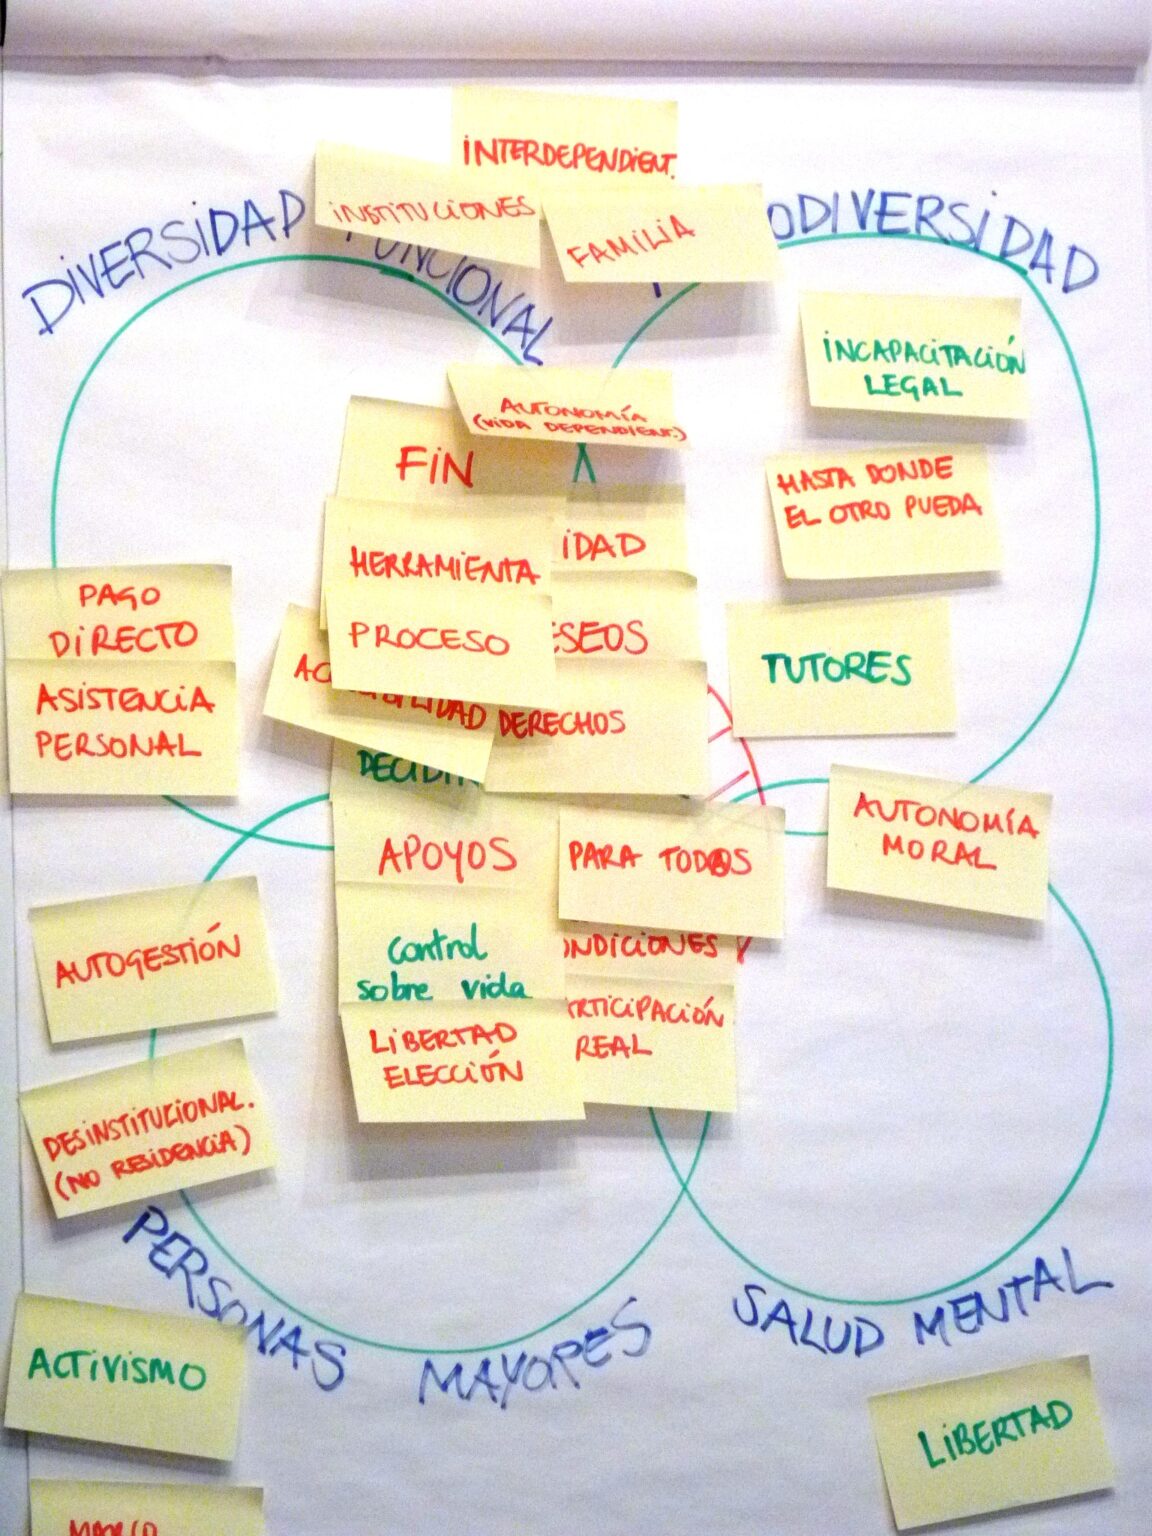 INTERDEPENDIENT.
INSTITUCIONES
FAMILIA
DIVERSIDAD FUNCIONAL
ODIVERSIDAD
INCAPACITACIÓN
LEGAL
AUTONOMÍA
(VIDA DEPENDIENT.)
FIN
HASTA DONDE
EL OTRO PUEDA
IDAD
HERRAMIENTA
PAGO
DIRECTO
PROCESO
ESEOS
TUTORES
ASISTENCIA
PERSONAL
DERECHOS
DECIDI
AUTONOMÍA
MORAL
APOYOS
PARA TOD@S
AUTOGESTIÓN
Control
sobre vida
ONDICIONES Y
LIBERTAD
ELECCIÓN
RTICIPACIÓN
REAL
DESINSTITUCIONAL.
(NO RESIDENCIA)
PERSONAS MAYORES
SALUD MENTAL
ACTIVISMO
LIBERTAD